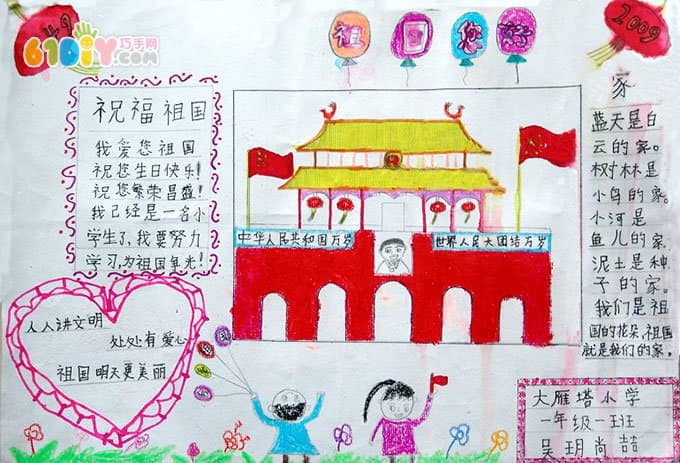 49
61DIY巧手网
.com
祖国您好
2009
祝福祖国
我爱您祖国
祝您生日快乐!
祝您繁荣昌盛!
我已经是一名小
学生了,我要努力
学习,为祖国争光!
人人讲文明
处处有爱心
祖国明天更美丽
中华人民共和国万岁
世界人民大团结万岁
家
蓝天是白
云的家。
树林是
小鸟的家。
小河是
鱼儿的家.
泥土是种
子的家。
我们是祖
国的花朵,祖国
就是我们的家。
大雁塔小学
一年级一班
吴玥尚喆